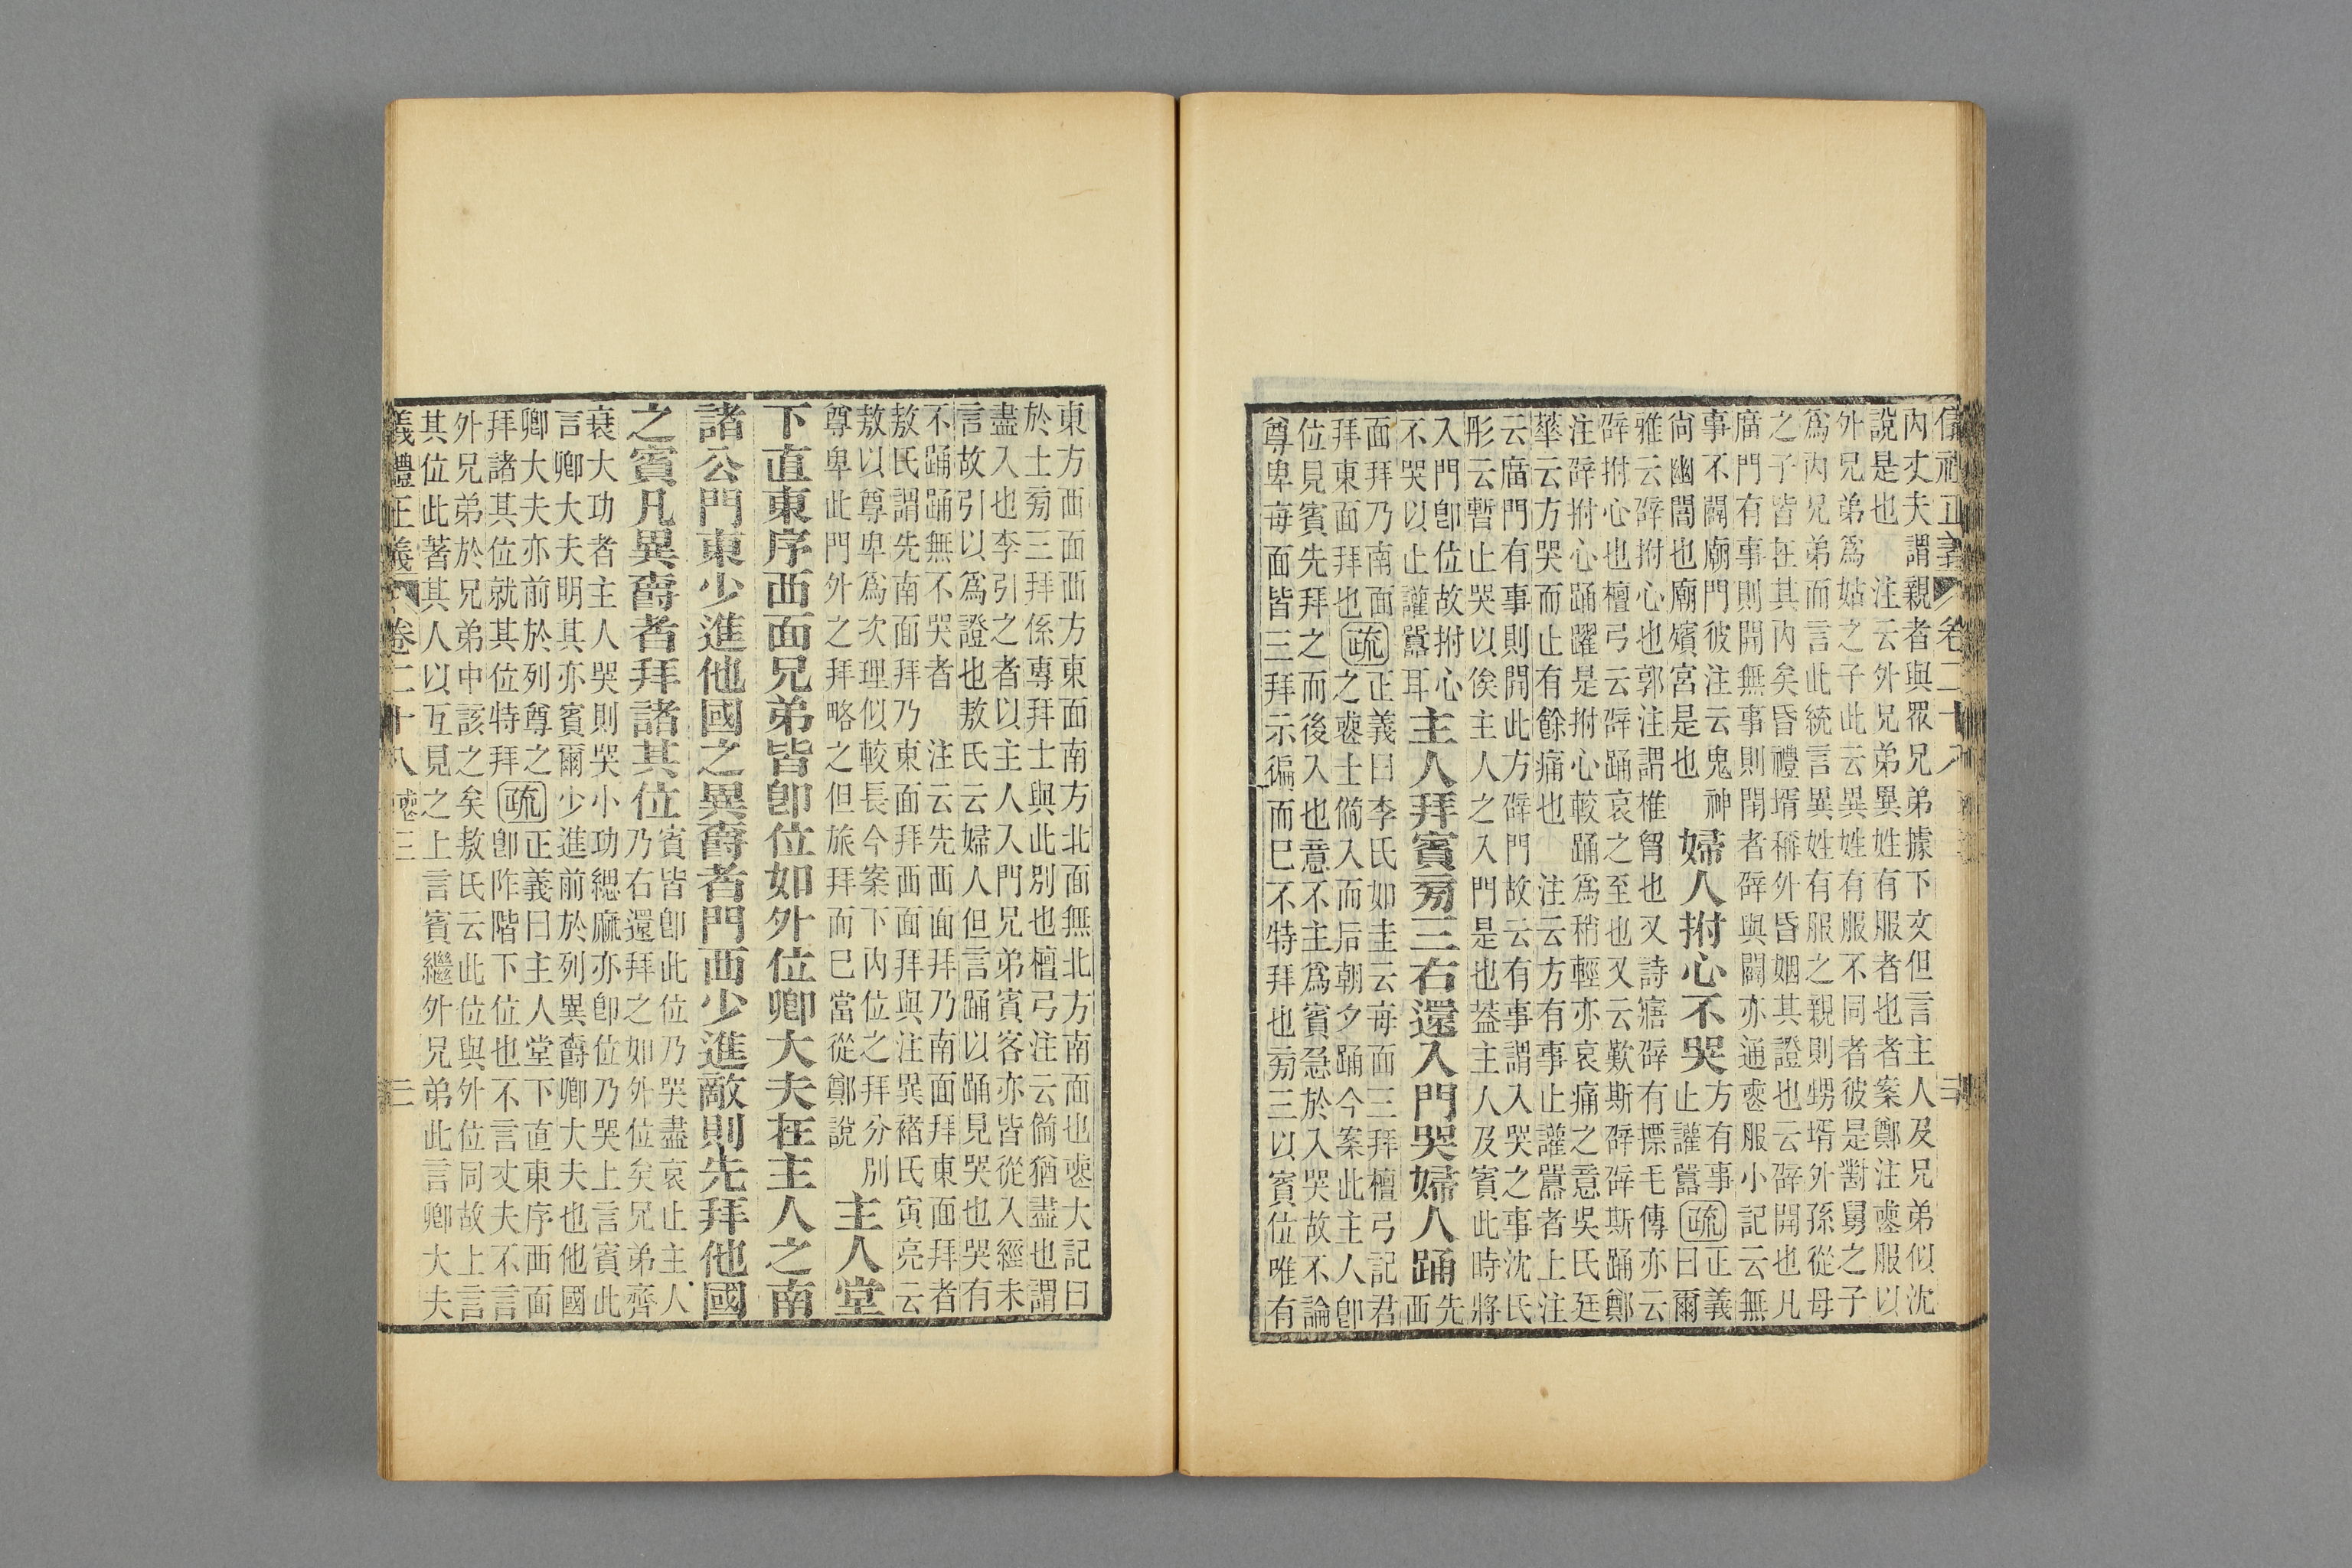 儀禮正義 卷二十八 二
內丈夫謂親者與眾兄弟據下文但言主人及兄弟似沈
說是也　注云外兄弟異姓有服者也者案鄭注喪服以
外兄弟爲姑之子此云異姓有服不同者彼是對舅之子
爲內兄弟而言此統言異姓有服之親則甥壻外孫從母
之子皆在其內矣昏禮壻稱外昏姻其證也云辟開也凡
庿門有事則開無事則閉者辟與闢亦通喪服小記云無
事不闢廟門彼注云鬼神
尚幽闇也廟殯宮是也
婦人拊心不哭
方有事
止讙囂
疏
正義
曰爾
雅云辟拊心也郭注謂椎胷也又詩寤辟有摽毛傳亦云
辟拊心也檀弓云辟踊哀之至也又云歎斯辟辟斯踊鄭
注辟拊心踊躍是拊心較踊爲稍輕亦哀痛之意吳氏廷
華云方哭而止有餘痛也　注云方有事止讙囂者上注
云庿門有事則開此方辟門故云有事謂入哭之事沈氏
彤云暫止哭以俟主人之入門是也葢主人及賓此時將
入門卽位故拊心
不哭以止讙囂耳
主人拜賓㫄三右還入門哭婦人踊
先
西
面拜乃南面
拜東面拜也
疏
正義曰李氏如圭云每面三拜檀弓記君
之喪士僃入而后朝夕踊今案此主人卽
位見賓先拜之而後入也意不主爲賓急於入哭故不論
尊卑每面皆三拜示徧而已不特拜也㫄三以賓位唯有
東方西面西方東面南方北面無北方南面也喪大記曰
於士㫄三拜係專拜士與此別也檀弓注云僃猶盡也謂
盡入也李引之者以主人入門兄弟賓客亦皆從入經未
言故引以爲證也敖氏云婦人但言踊以踊見哭也哭有
不踊踊無不哭者　注云先西面拜乃南面拜東面拜者
敖氏謂先南面拜乃東面拜西面拜與注異褚氏寅亮云
敖以尊卑爲次理似較長今案下內位之拜分別
尊卑此門外之拜略之但旅拜而已當從鄭說
主人堂
下直東序西面兄弟皆卽位如外位卿大夫在主人之南
諸公門東少進他國之異爵者門西少進敵則先拜他國
之賓凡異爵者拜諸其位
賓皆卽此位乃哭盡哀止主人
乃右還拜之如外位矣兄弟齊
衰大功者主人哭則哭小功緦麻亦卽位乃哭上言賓此
言卿大夫明其亦賓爾少進前於列異爵卿大夫也他國
卿大夫亦前於列尊之
拜諸其位就其位特拜
疏
正義曰主人堂下直東序西面
卽阼階下位也不言丈夫不言
外兄弟於兄弟中該之矣敖氏云此位與外位同故上言
其位此著其人以互見之上言賓繼外兄弟此言卿大夫
儀禮正義 卷二十八 喪三 二